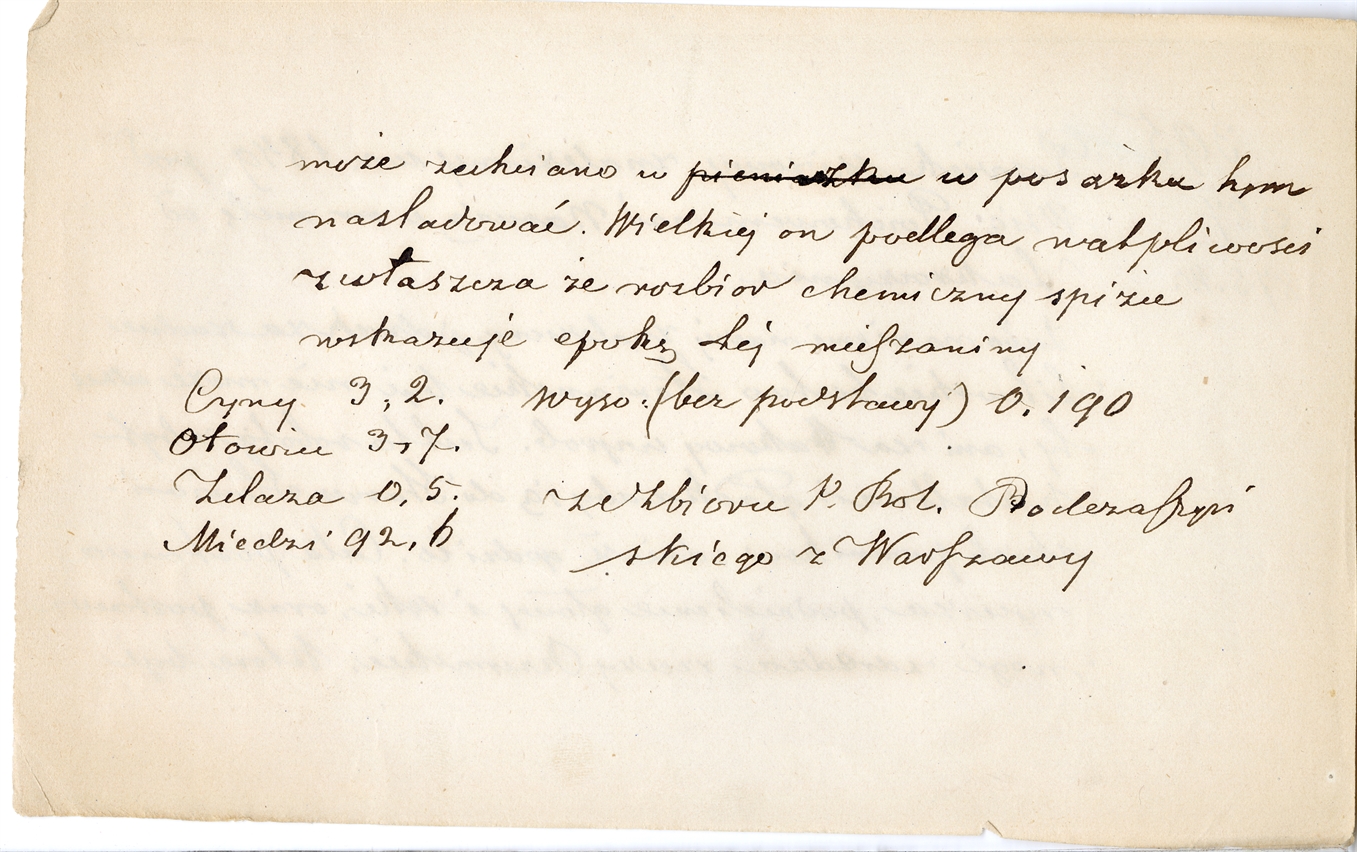 może zechciano w pieniążku w posążku tym
naśladować. Wielkiej on podlega wątpliwości
zwłaszcza że rozbior chemiczny spiżu
wskazuje epokę téj mieszaniny
Cyny 3,2. wyso. (bez podstawy) 0.190
Ołowiu 3,7.
Żelaza 0,5. ze Zbioru P. Bol. Podczaszyń
Miedzi 92,6 skiego z Warszawy